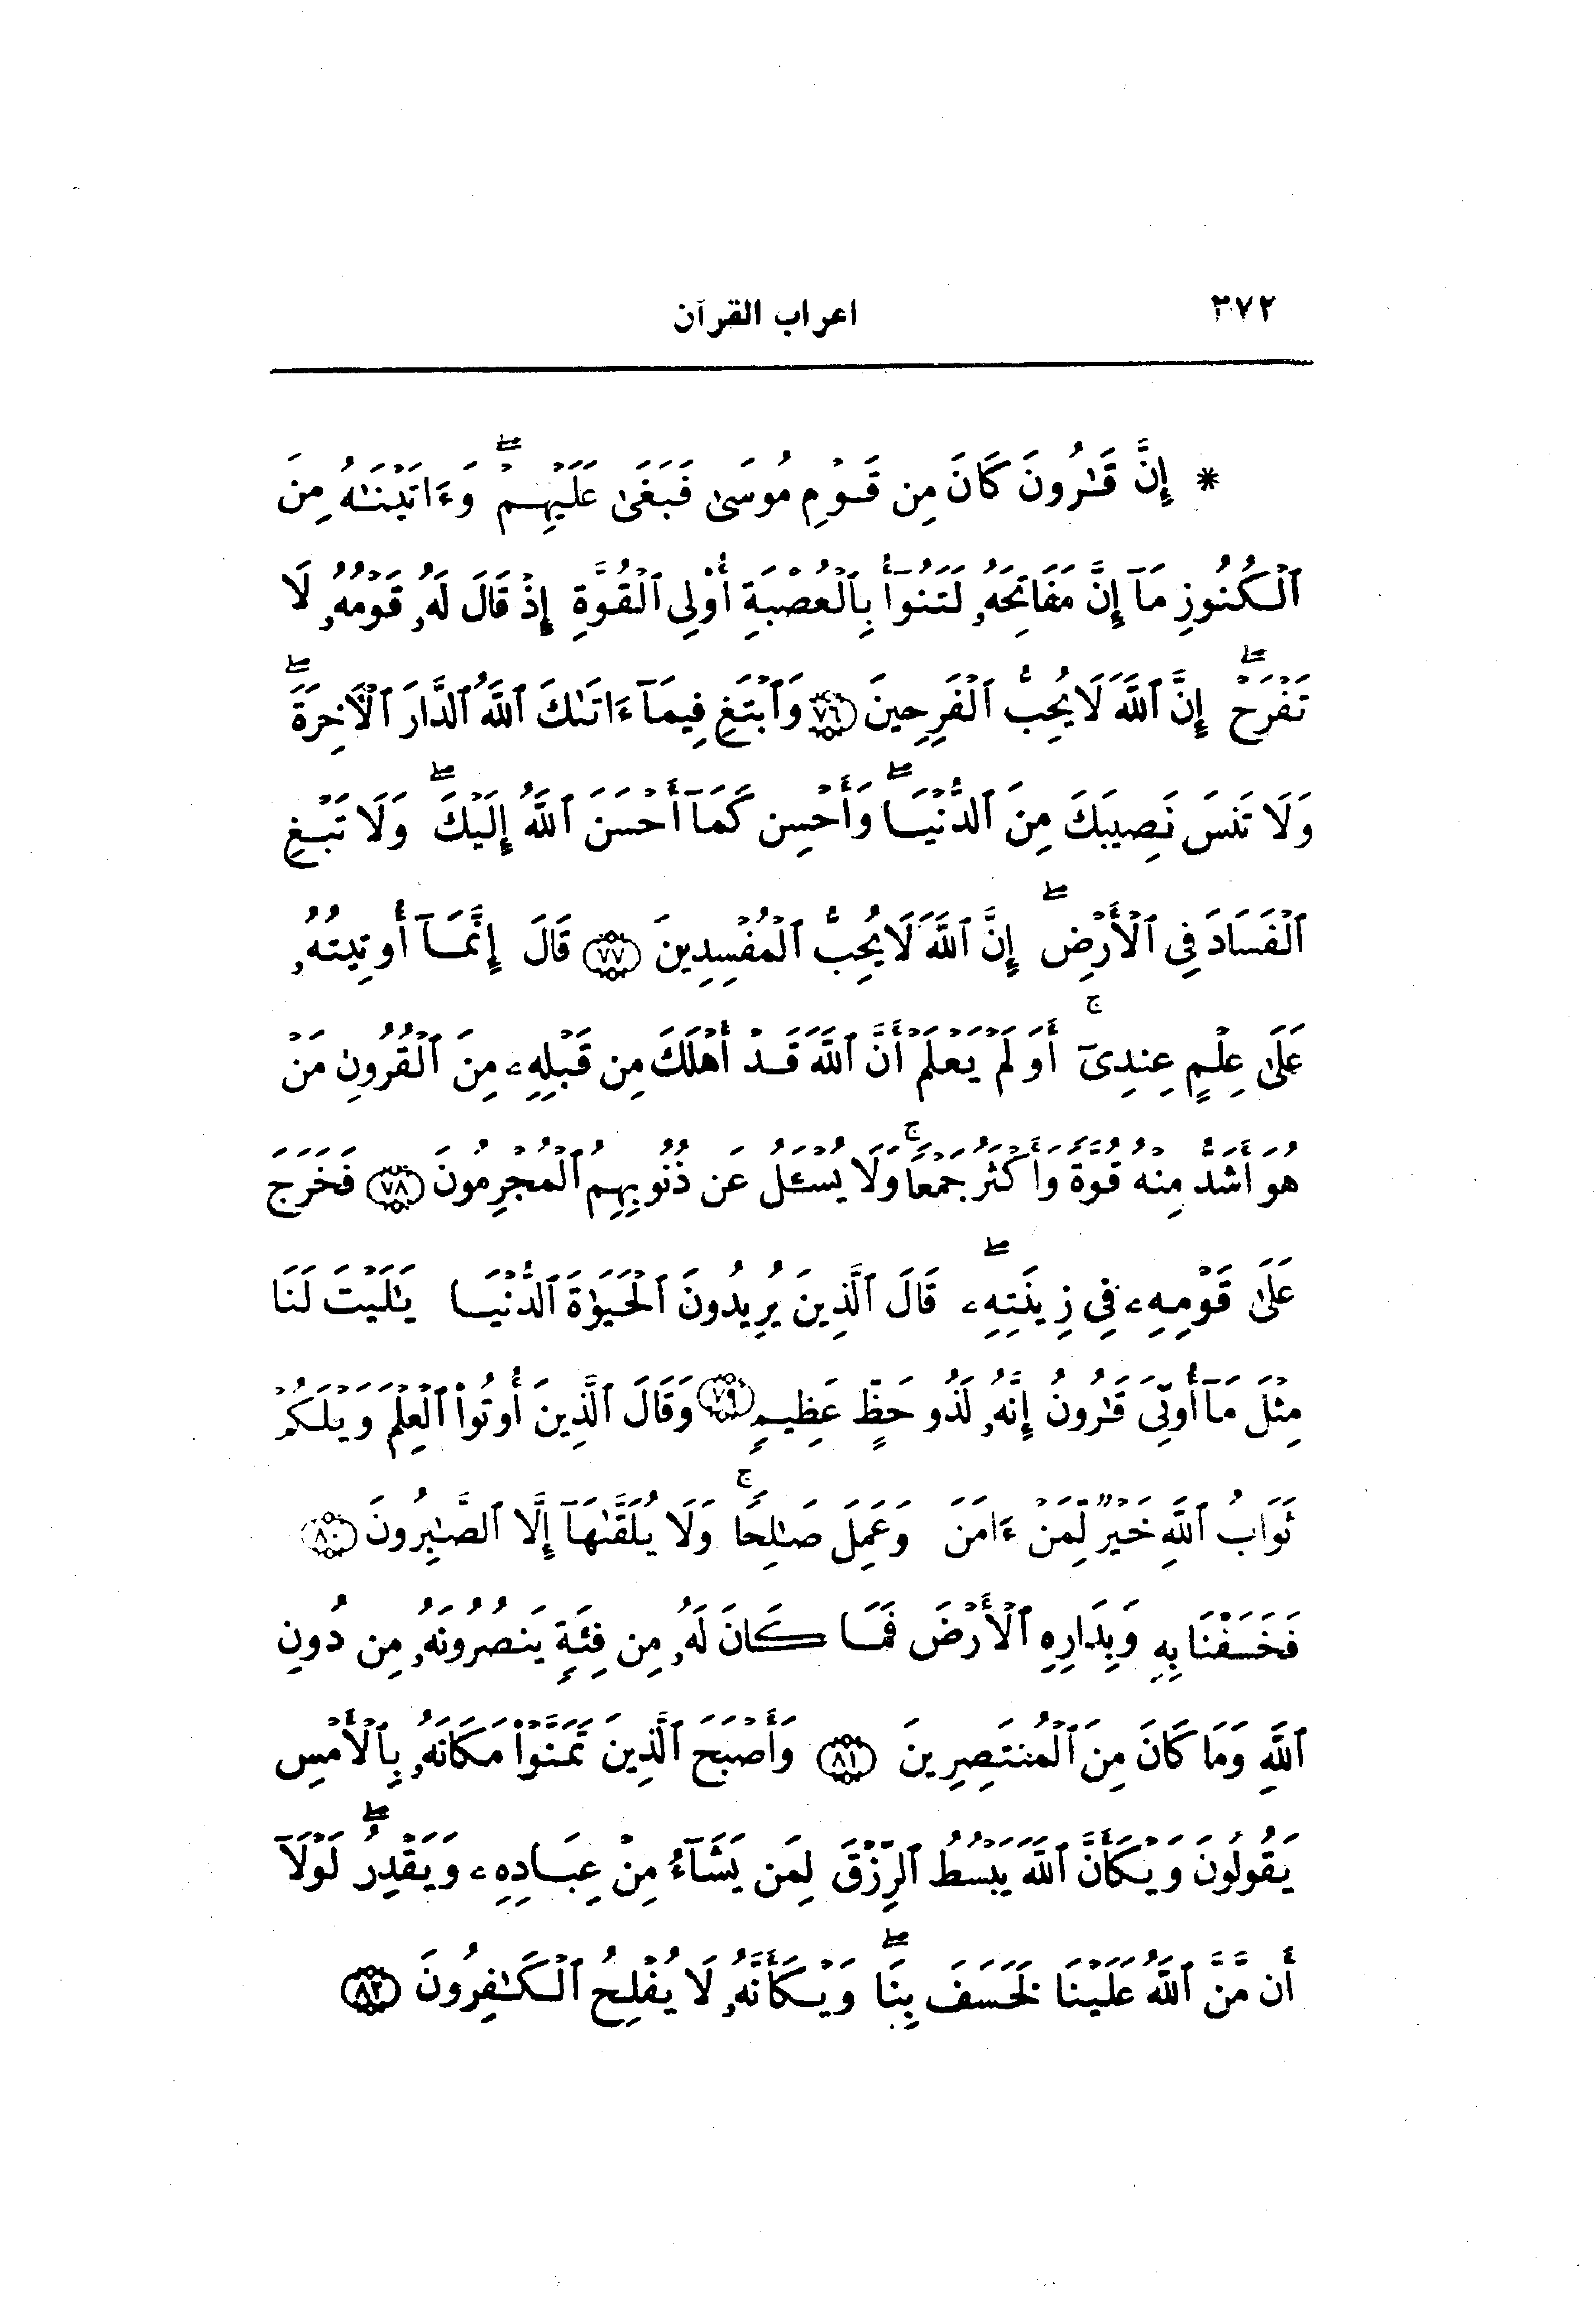 ٣٧٢ اعراب القرآن
* إِنَّ قَـٰرُونَ كَانَ مِن قَوْمِ مُوسَىٰ فَبَغَىٰ عَلَيْهِمْ ۖ وَءَاتَيْنَـٰهُ مِنَ
ٱلْكُنُوزِ مَآ إِنَّ مَفَاتِحَهُۥ لَتَنُوٓأُ بِٱلْعُصْبَةِ أُو۟لِى ٱلْقُوَّةِ إِذْ قَالَ لَهُۥ قَوْمُهُۥ لَا
تَفْرَحْ ۖ إِنَّ ٱللَّهَ لَا يُحِبُّ ٱلْفَرِحِينَ ٧٦ وَٱبْتَغِ فِيمَآ ءَاتَىٰكَ ٱللَّهُ ٱلدَّارَ ٱلْأَخِرَةَ ۖ
وَلَا تَنسَ نَصِيبَكَ مِنَ ٱلدُّنْيَا ۖ وَأَحْسِن كَمَآ أَحْسَنَ ٱللَّهُ إِلَيْكَ ۖ وَلَا تَبْغِ
ٱلْفَسَادَ فِى ٱلْأَرْضِ ۖ إِنَّ ٱللَّهَ لَا يُحِبُّ ٱلْمُفْسِدِينَ ٧٧ قَالَ إِنَّمَآ أُوتِيتُهُۥ
عَلَىٰ عِلْمٍ عِندِىٓ ۚ أَوَلَمْ يَعْلَمْ أَنَّ ٱللَّهَ قَدْ أَهْلَكَ مِن قَبْلِهِۦ مِنَ ٱلْقُرُونِ مَنْ
هُوَ أَشَدُّ مِنْهُ قُوَّةً وَأَكْثَرُ جَمْعًا ۚ وَلَا يُسْـَٔلُ عَن ذُنُوبِهِمُ ٱلْمُجْرِمُونَ ٧٨ فَخَرَجَ
عَلَىٰ قَوْمِهِۦ فِى زِينَتِهِۦ ۖ قَالَ ٱلَّذِينَ يُرِيدُونَ ٱلْحَيَوٰةَ ٱلدُّنْيَا يَـٰلَيْتَ لَنَا
مِثْلَ مَآ أُوتِىَ قَـٰرُونُ إِنَّهُۥ لَذُو حَظٍّ عَظِيمٍ ٧٩ وَقَالَ ٱلَّذِينَ أُوتُوا۟ ٱلْعِلْمَ وَيْلَكُمْ
ثَوَابُ ٱللَّهِ خَيْرٌ لِّمَنْ ءَامَنَ وَعَمِلَ صَـٰلِحًا ۚ وَلَا يُلَقَّىٰهَآ إِلَّا ٱلصَّـٰبِرُونَ ٨٠
فَخَسَفْنَا بِهِ وَبِدَارِهِ ٱلْأَرْضَ فَمَا كَانَ لَهُۥ مِن فِئَةٍ يَنصُرُونَهُۥ مِن دُونِ
ٱللَّهِ وَمَا كَانَ مِنَ ٱلْمُنتَصِرِينَ ٨١ وَأَصْبَحَ ٱلَّذِينَ تَمَنَّوْا۟ مَكَانَهُۥ بِٱلْأَمْسِ
يَقُولُونَ وَيْكَأَنَّ ٱللَّهَ يَبْسُطُ ٱلرِّزْقَ لِمَن يَشَآءُ مِنْ عِبَادِهِۦ وَيَقْدِرُ ۖ لَوْلَآ
أَن مَّنَّ ٱللَّهُ عَلَيْنَا لَخَسَفَ بِنَا ۖ وَيْكَأَنَّهُۥ لَا يُفْلِحُ ٱلْكَـٰفِرُونَ ٨٢